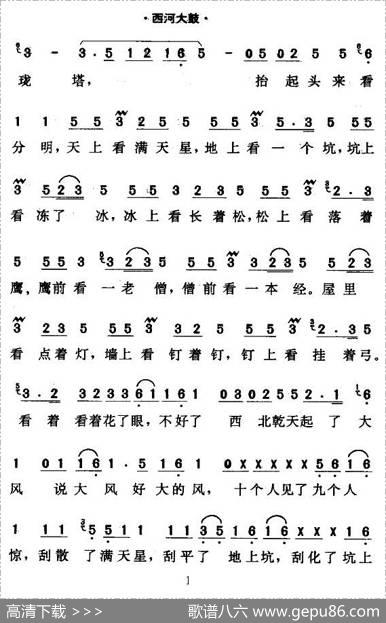 ·西河大鼓·
3 - 3·51216 5 - 05025 5 6
珑塔， 抬起头来看
1 1 55 3 25 55 3 5·3 5 55
分明，天上看满天星，地上看一个坑，坑上
3 523 5 5 5 3 235 5 55 3 2·3
看冻了冰，冰上看长着松，松上看落着
5 553 3 23 5 55 3 523 5 523
鹰，鹰前看一老僧，僧前看一本经。屋里
3 235 55 3 325 55 3 2·35
看点着灯，墙上看钉着钉，钉上看挂着弓。
3·2 32336116 0302552·16
看着看着花了眼，不好了西北乾天起了大
1 0116 1·516 0XXXXX5616
风说大风好大的风，十个人见了九个人
1 11 5511 11 35 1616 0XXXXX
惊，刮散了满天星，刮平了地上坑，刮化了坑上
1
高清下载 >>>
歌谱八六 www.gepu86.com